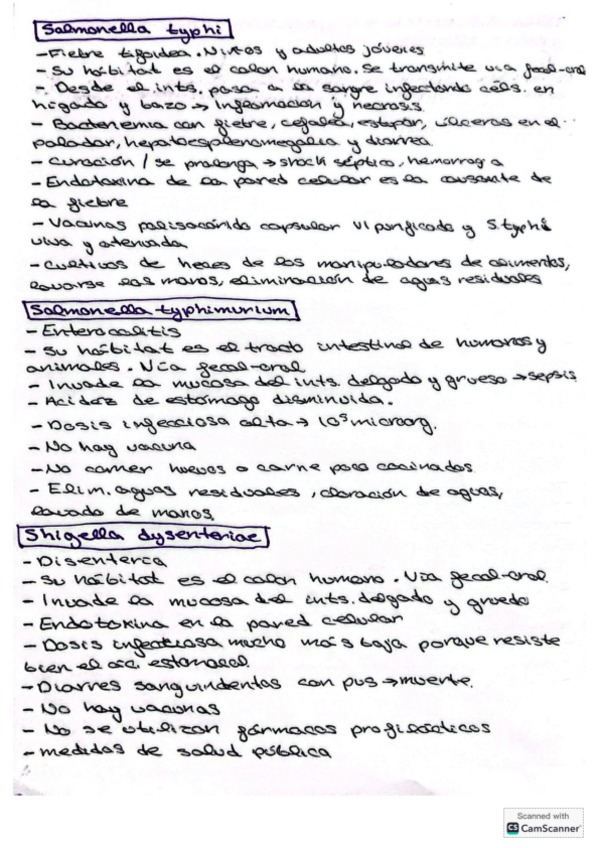 Salmonella typhi
- Fiebre tifoidea. Niños y adultos jóvenes
- Su hábitat es el colon humano. Se transmite vía fecal-oral
- Desde el ints. pasa a la sangre infectando céls. en
hígado y bazo → Inflamación y necrosis.
- Bacteriemia con fiebre, cefalea, estupor, úlceras en el
paladar, hepatoesplenomegalia y diarrea.
- Curación / se prolonga → shock séptico, hemorragia
- Endotoxina de la pared celular es la causante de
la fiebre
- Vacunas polisacárido capsular VI purificado y S typhi
viva y atenuada
- Cultivos de heces de los manipuladores de alimentos,
lavarse las manos, eliminación de aguas residuales
Salmonella typhimurium
- Enterocolitis
- Su hábitat es el tracto intestinal de humanos y
animales. Vía fecal-oral
- Invade la mucosa del ints. delgado y grueso → sepsis
- Acidez de estómago disminuida.
- Dosis infecciosa alta → 10⁵ microorg.
- No hay vacuna
- No comer huevos o carne poco cocinados
- Elim. aguas residuales, cloración de aguas,
lavado de manos.
Shigella dysenteriae
- Disentería
- Su hábitat es el colon humano. Vía fecal-oral.
- Invade la mucosa del ints. delgado y grueso
- Endotoxina en la pared celular
- Dosis infecciosa mucho más baja porque resiste
bien el ác. estomacal.
- Diarres sanguindentas con pus → muerte.
- No hay vacunas
- No se utilizan fármacos profilácticos
- medidas de salud pública
Scanned with
CS CamScanner